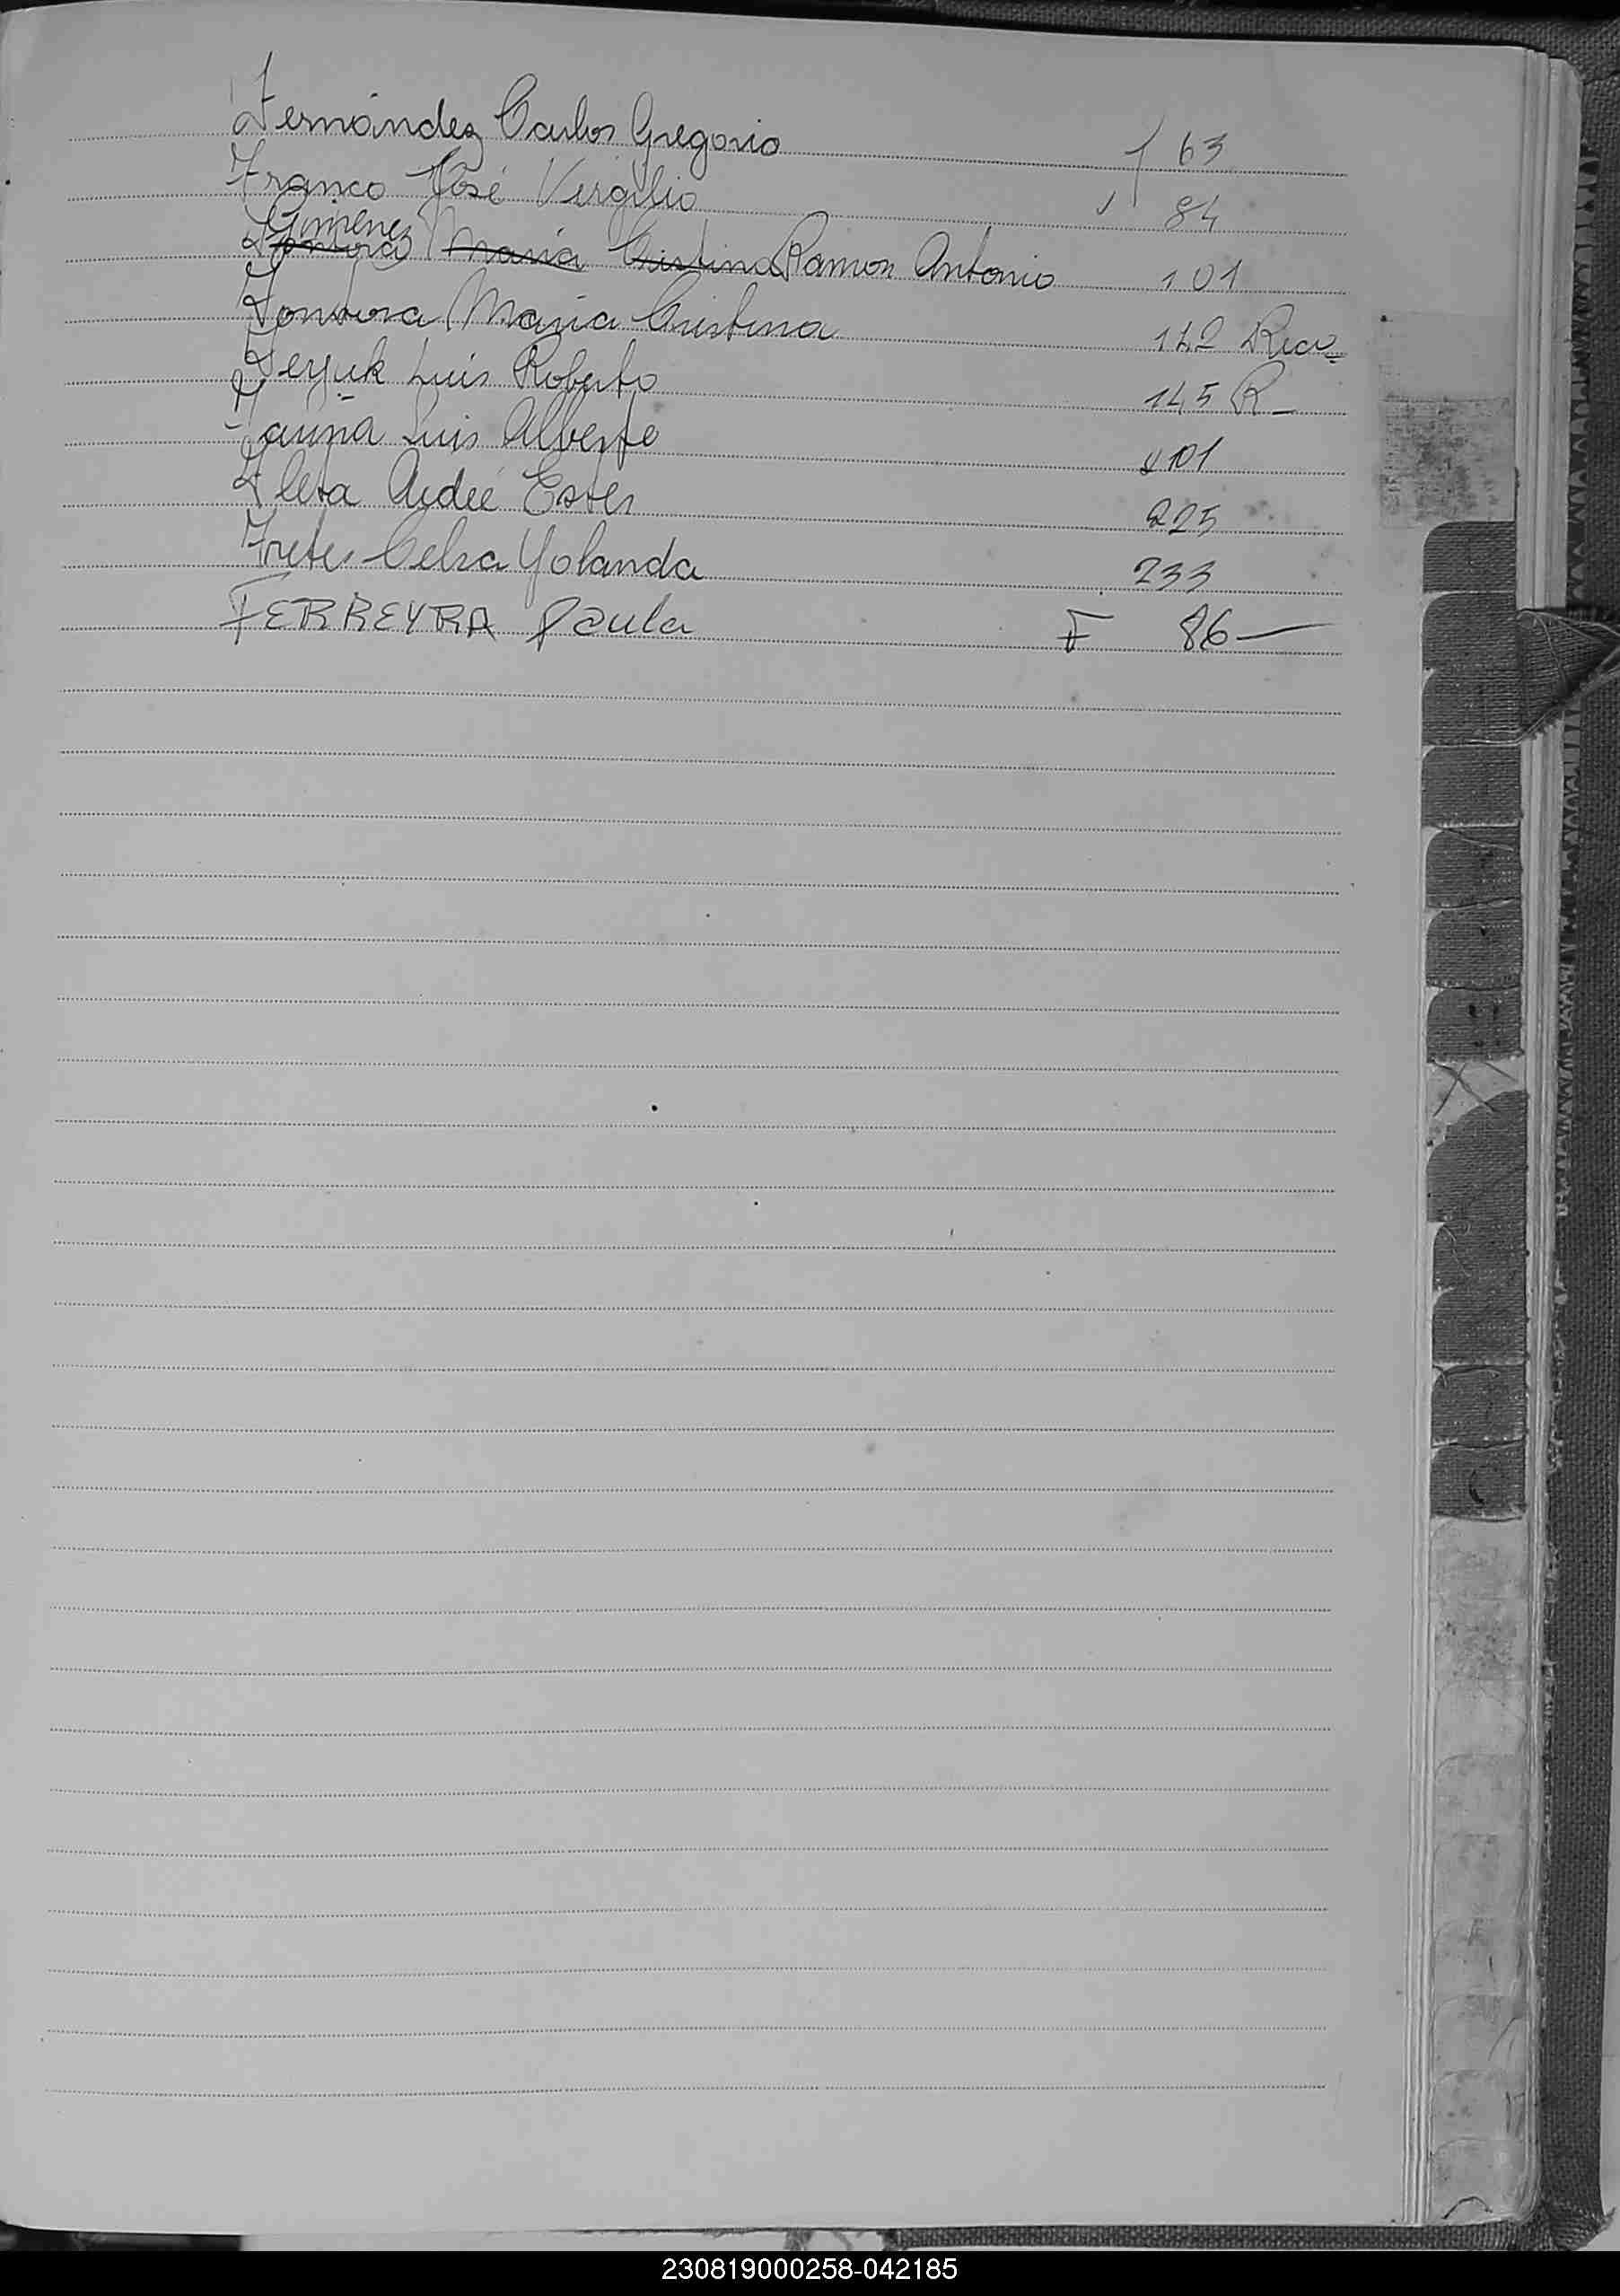 Fernández Carlos Gregorio 63
Franco José Virgilio 84
Gimenez
Fontora Maria Cristina Ramon Antonio 101
Fontora Maria Cristina 142 Rec
Luis Roberto 145 R
Luis Alberto 101
Fleita Aidee Ester 225
Fretes Celsa Yolanda 233
FERREYRA Paula F 86
230819000258-042185